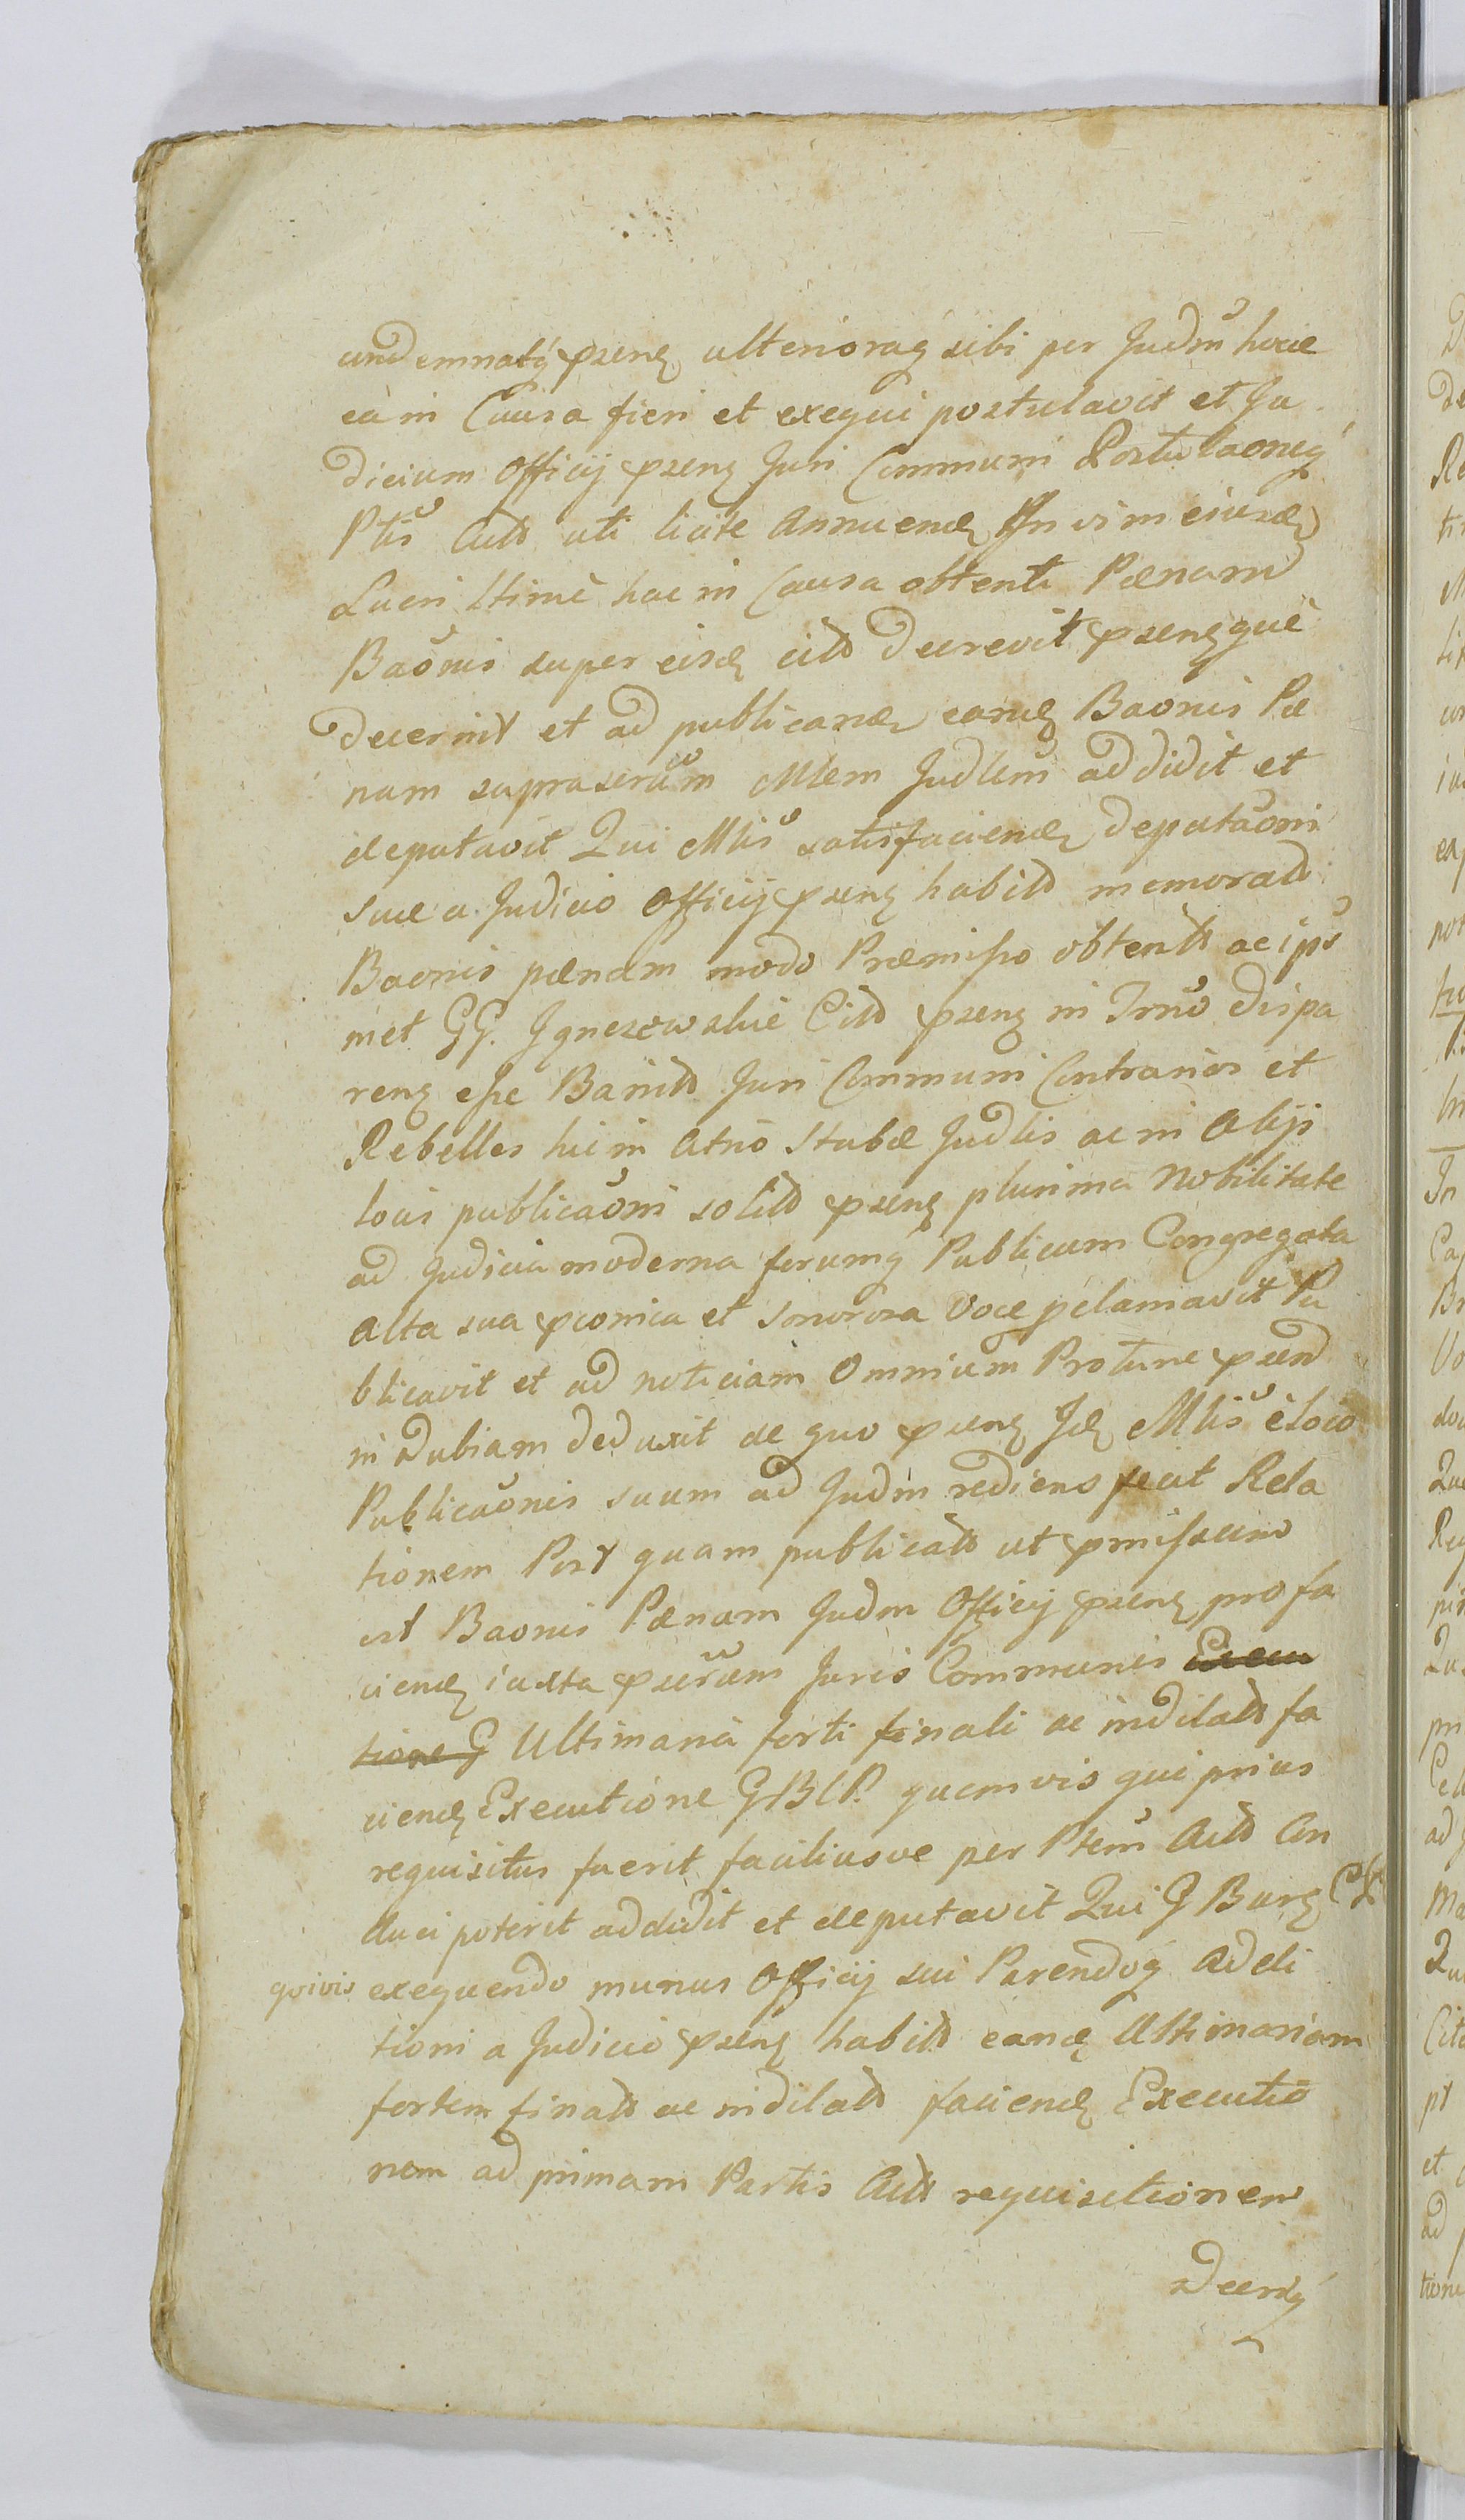 condemnatq́ƺ psenƺ ulterioraq́ƺ sibi per Judm hocce
eà in Causa fieri et exequi postulavit et Ju
dicium Officij psenƺ Juri Communi Postulaoneq́ƺ
Ptis Actt uti licite Annuendƺ In vim eiusdƺ
Lucri Itimè hac in Causa obtenti Pænam
Baonis super eisdƺ citt decrevit psenƺquè
decernit et ad publicandƺ eandƺ Baonis Pæ
nam suprascrum Mlem Judlem addidit et
deputavit Qui Mlis satisfaciendƺ deputaoni
suæ a Judicio Officij psenƺ habitt memoratt
Baonis pænam modo Præmisso obtentt ac ips
met GG. Ignesowskie Citt psenƺ in Trno dispa
renƺ esse Banitt Juri Communi Contrarios et
Rebelles hic in Atrio Stubæ Judlis ac in Alijs
locis publicaoni solitt psenƺ plurima Nobilitate
ad Judicia moderna forumq́ƺ Publicum Congregata
alta sua pconica et Sonorosa Voce pclamavit Pu
blicavit et ad noticiam Omnium Protunc psen
indubiam deduxit de quo psenƺ Jdƺ Mlis è loco
Publicaonis suum ad Judm rediens fecit Rela
tionem Post quam publicatt ut pmissum
est Baonis Pænam Judm Officij psenƺ pro fa
ciendƺ iuxta pscrum Juris Communis Execu
tione G Ultimaria forti finali ac indilatt fa
ciendƺ Executione GBCP. quemvis qui prius
requisitus fuerit faciliusve per Ptem Actt Con
duci poterit addidit et deputavit Qui G Burƺ
quivis exequendo munus Officij sui Parendoq́ƺ Adeli
tioni a Judicio psenƺ habitt eandƺ Ultimariam
fortem finatt ac indilatt faciendƺ Executio
nem ad primam Partis Actt requisitionem